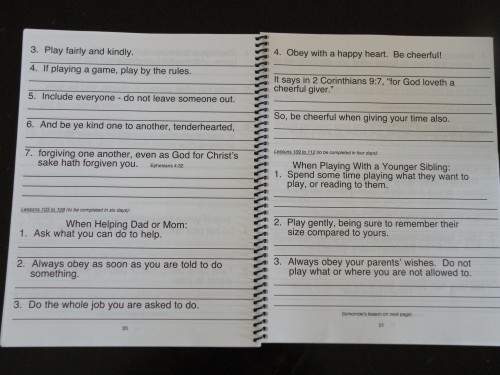 3. Play fairly and kindly.
4. If playing a game, play by the rules.
5. Include everyone - do not leave someone out.
6. And be ye kind one to another, tenderhearted,
7. forgiving one another, even as God for Christ's
sake hath forgiven you. Ephesians 4:32
Lessons 103 to 108 (to be completed in six days):
When Helping Dad or Mom:
1. Ask what you can do to help.
2. Always obey as soon as you are told to do
something.
3. Do the whole job you are asked to do.
4. Obey with a happy heart. Be cheerful!
It says in 2 Corinthians 9:7, "for God loveth a
cheerful giver."
So, be cheerful when giving your time also.
Lessons 109 to 112 (to be completed in four days):
When Playing With a Younger Sibling:
1. Spend some time playing what they want to
play, or reading to them.
2. Play gently, being sure to remember their
size compared to yours.
3. Always obey your parents' wishes. Do not
play what or where you are not allowed to.
(tomorrow's lesson on next page)
51